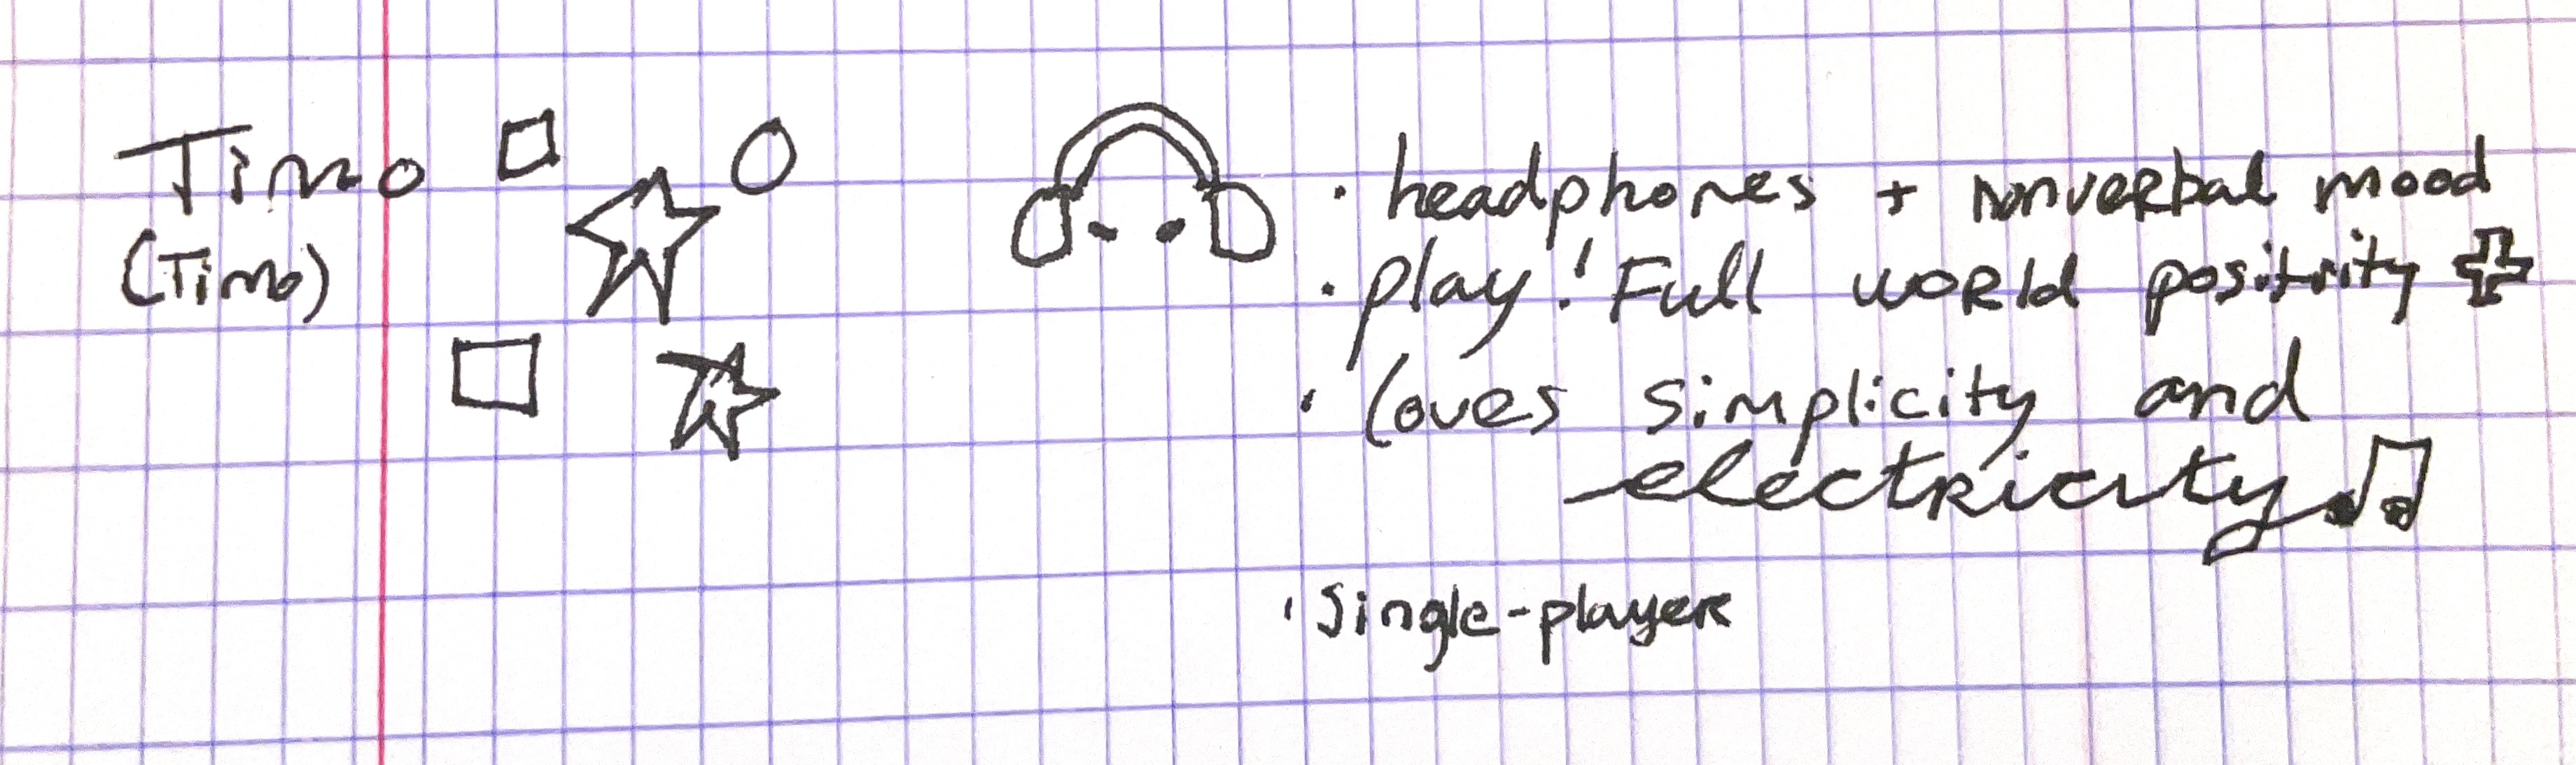 Timo
(Timo)
· headphones + nonverbal mood
· play! Full world positivity
· loves simplicity and
electricity
· Single-player